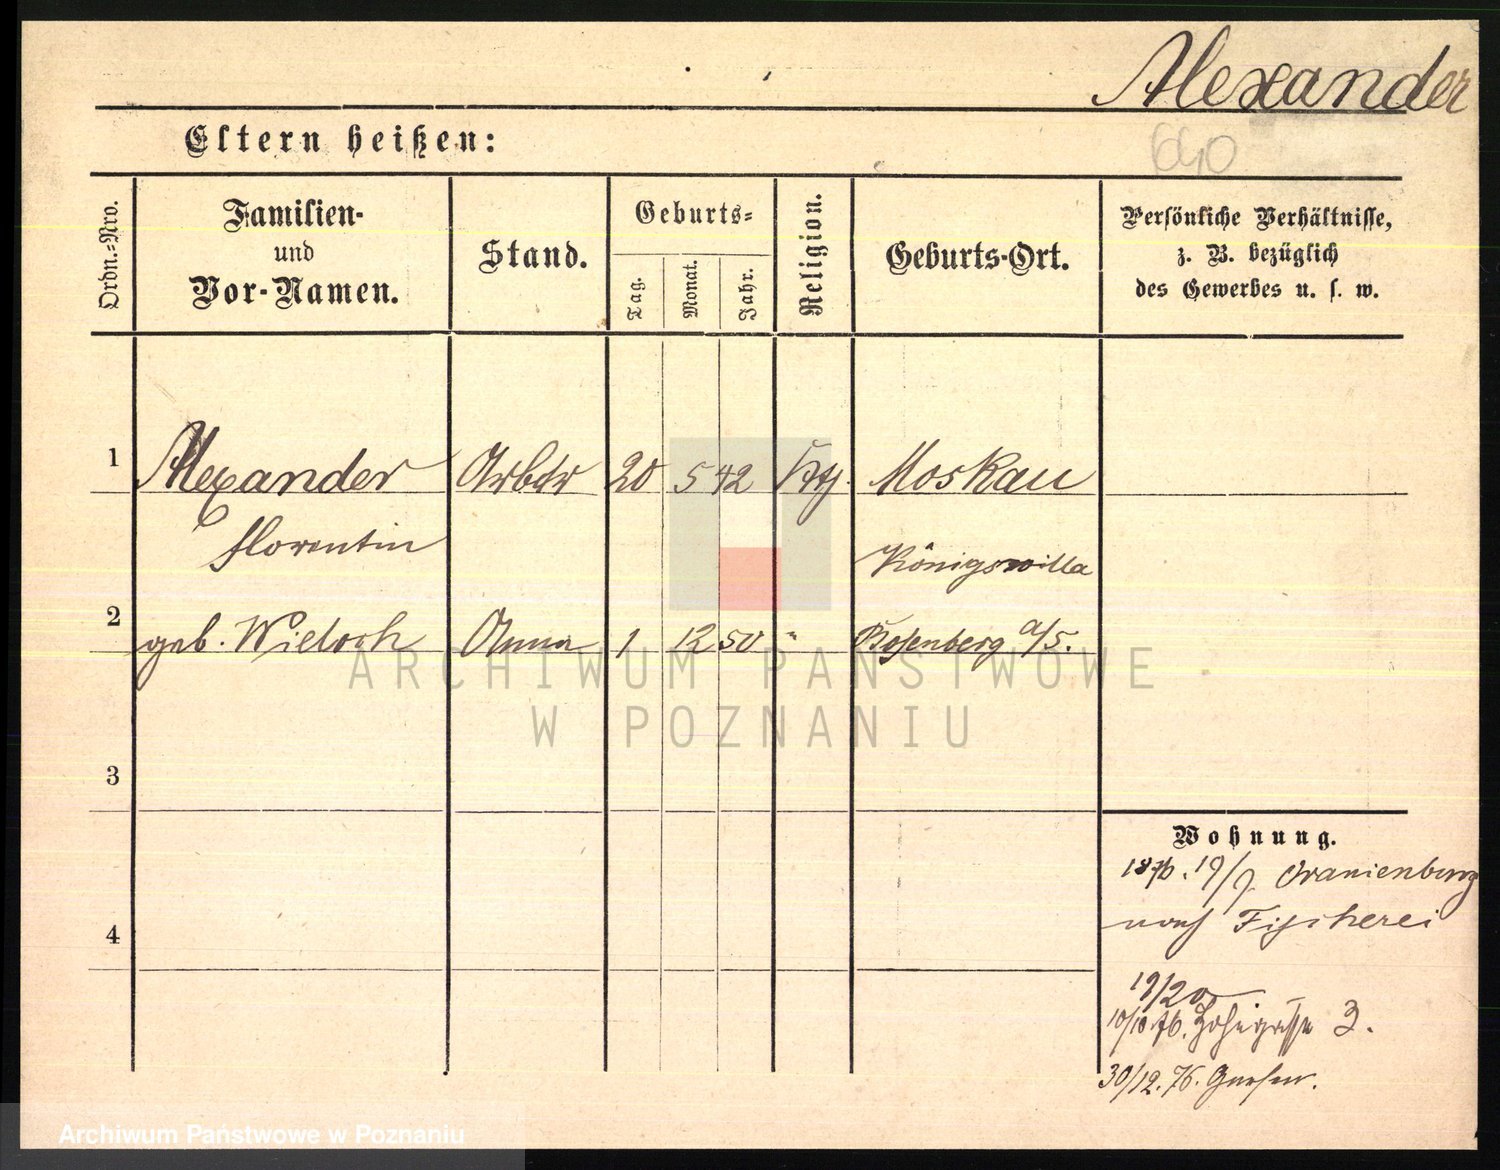 Alexander
640
Eltern heißen:
Ordn.-Nro.
Familien-
und
Vor-Namen.
Stand.
Geburts-
Tag.
Monat.
Jahr.
Religion.
Geburts-Ort.
Persönliche Verhältnisse,
z. B. bezüglich
des Gewerbes u. s. w.
1 Alexander Arbtr 20 5 42 Moskau
Florentin
Königswilla
2 geb. Wieloch Anna 1 12 50 " Rosenberg a/S.
ARCHIWUM PAŃSTWOWE
W POZNANIU
3
4
Wohnung.
1876. 19/7. Oranienburg
nach Fischerei
19/20
10/10.76. 3.
30/12. 76. Gnesen.
Archiwum Państwowe w Poznaniu